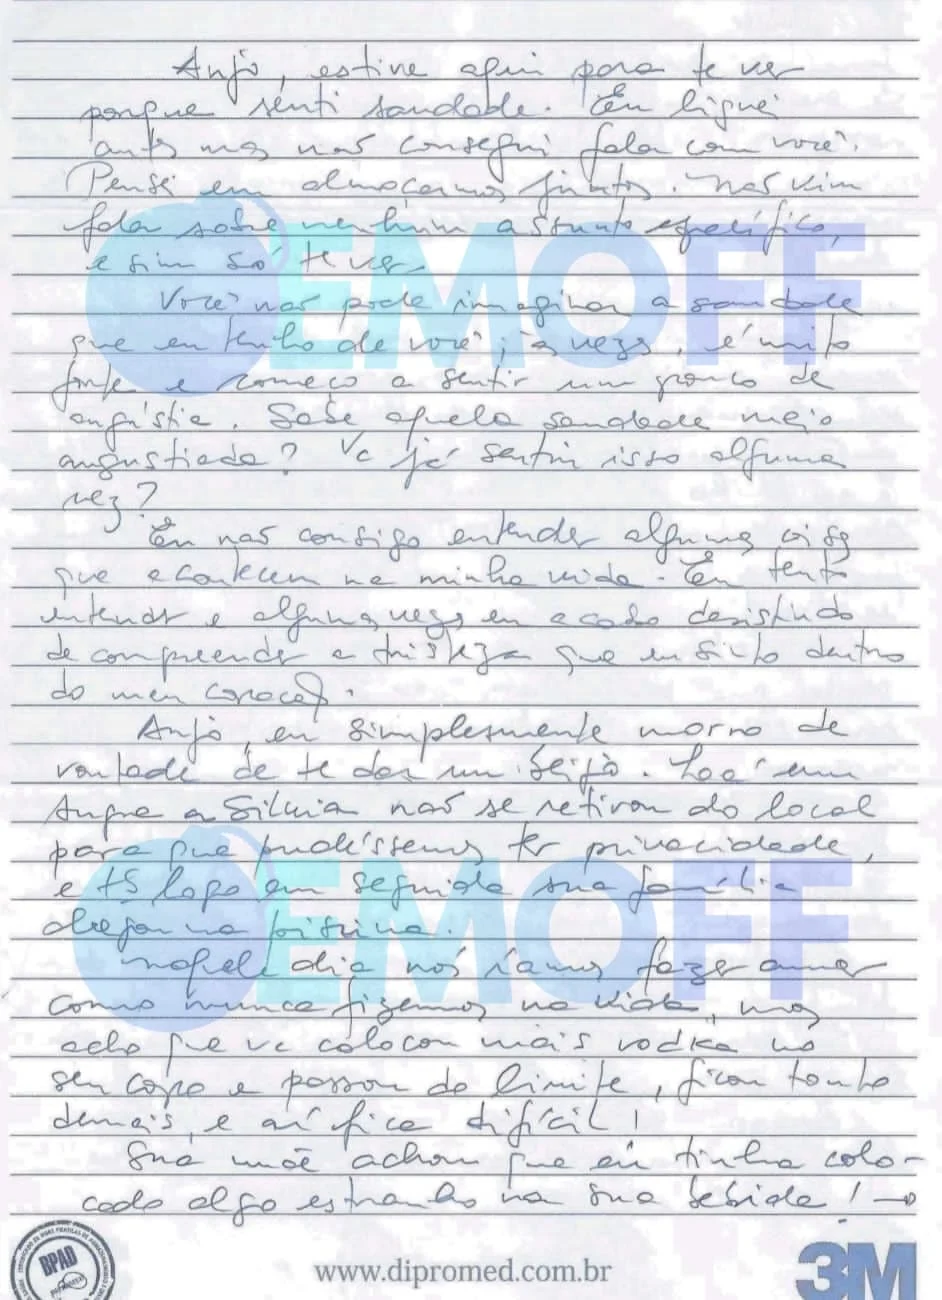 Anjo, estive aqui para te ver
porque senti saudade. Eu liguei
antes mas não consegui falar com você.
Pensei em almoçarmos juntos. Não vim
falar sobre nenhum assunto específico,
e sim só te ver.
Você não pode imaginar a saudade
que eu tenho de você; às vezes, é muito
forte e começo a sentir um pouco de
angústia. Sabe aquela saudade meio
angustiada? Vc já sentiu isso alguma
vez?
Eu não consigo entender algumas coisas
que acontecem na minha vida. Eu tento
entender e algumas vezes eu acabo desistindo
de compreender a tristeza que eu sinto dentro
do meu coração.
Anjo, eu simplesmente morro de
vontade de te dar um beijo. Lá em
Angra a Silvia não se retirou do local
para que pudéssemos ter privacidade,
e logo em seguida sua família
chegou na piscina.
Naquele dia nós íamos fazer amor
como nunca fizemos na vida, mas
acho que vc colocou mais vodka no
seu copo e passou do limite, ficou tonto
demais, e aí fica difícil!
Sua mãe achou que eu tinha colo-
cado algo estranho na sua bebida! →
EMOFF
EMOFF
BPAD
www.dipromed.com.br
3M